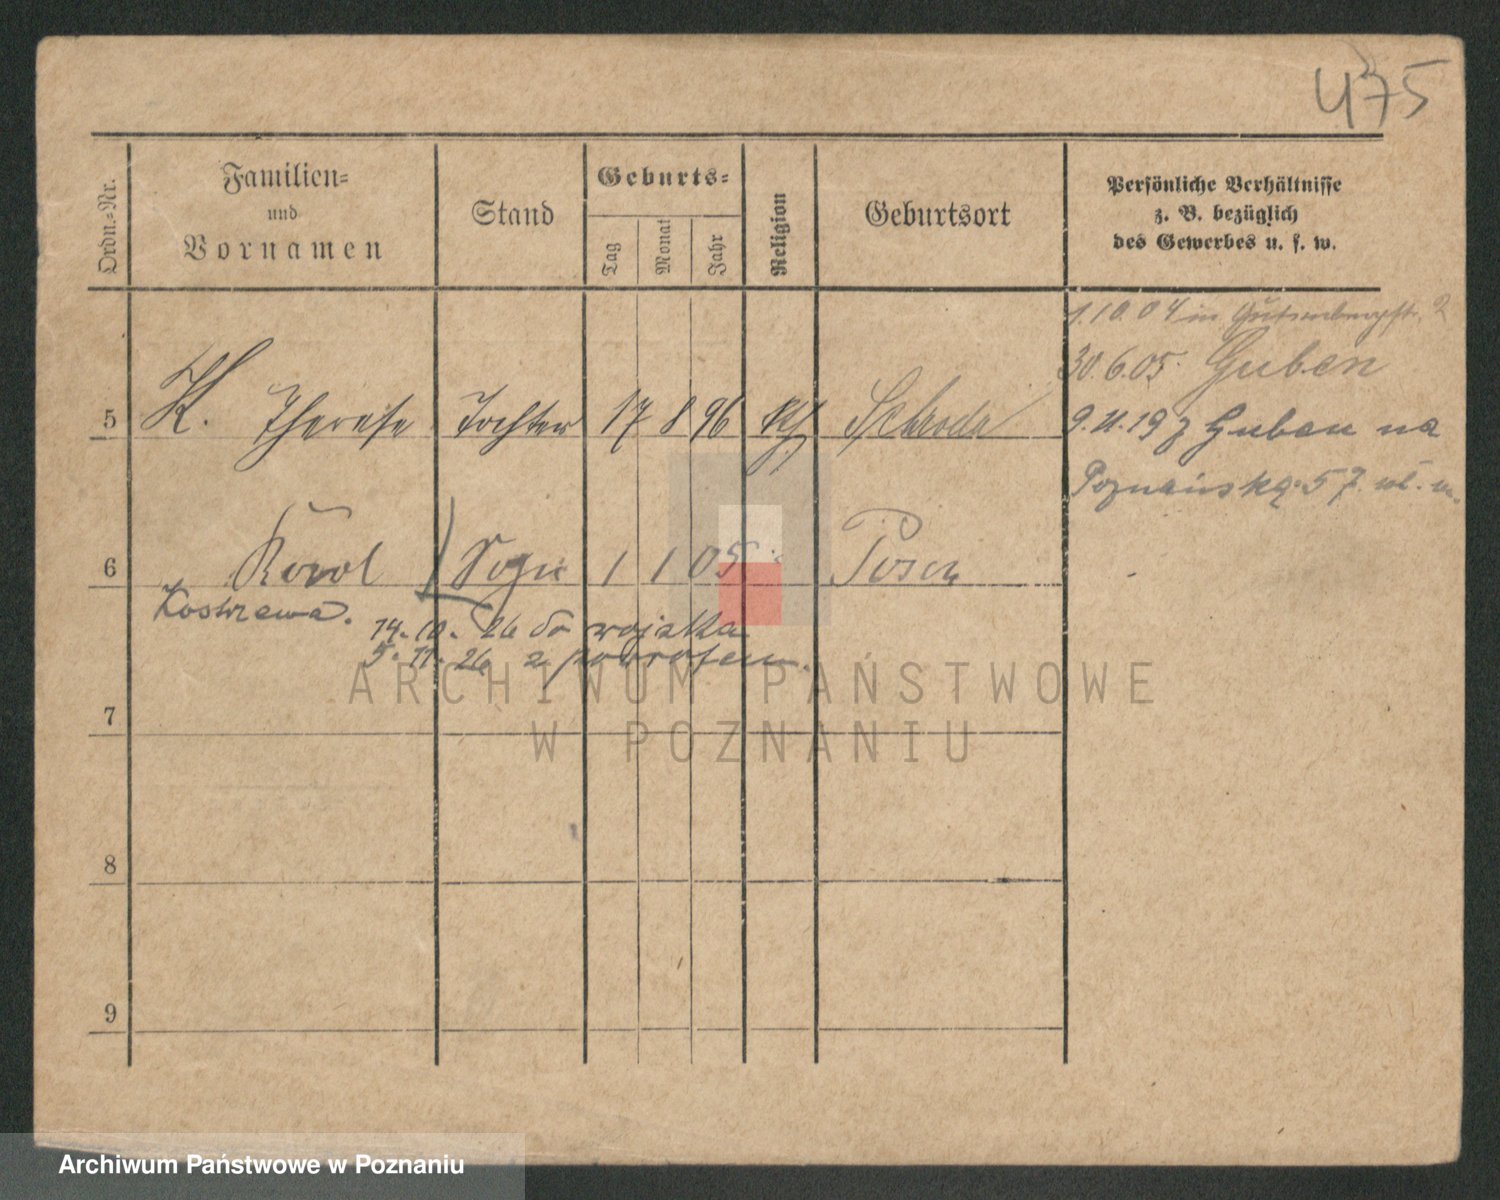 475
Ordn.-Nr.
Familien-
und
Vornamen
Stand
Geburts-
Tag
Monat
Jahr
Religion
Geburtsort
Persönliche Verhältnisse
z. B. bezüglich
des Gewerbes u. s. w.
1.10.04 in Gutenbergstr. 2
30.6.05. Guben
5 K. Therese Tochter 17 8 96 kth Schroda
9.11.19 z Guben na
Poznańską 57
6 Karol Sohn 1 1 05 Posen
Kostrzewa.
14.10.26 do wojska
5.11.26 z powrotem.
ARCHIWUM PAŃSTWOWE
W POZNANIU
7
8
9
Archiwum Państwowe w Poznaniu